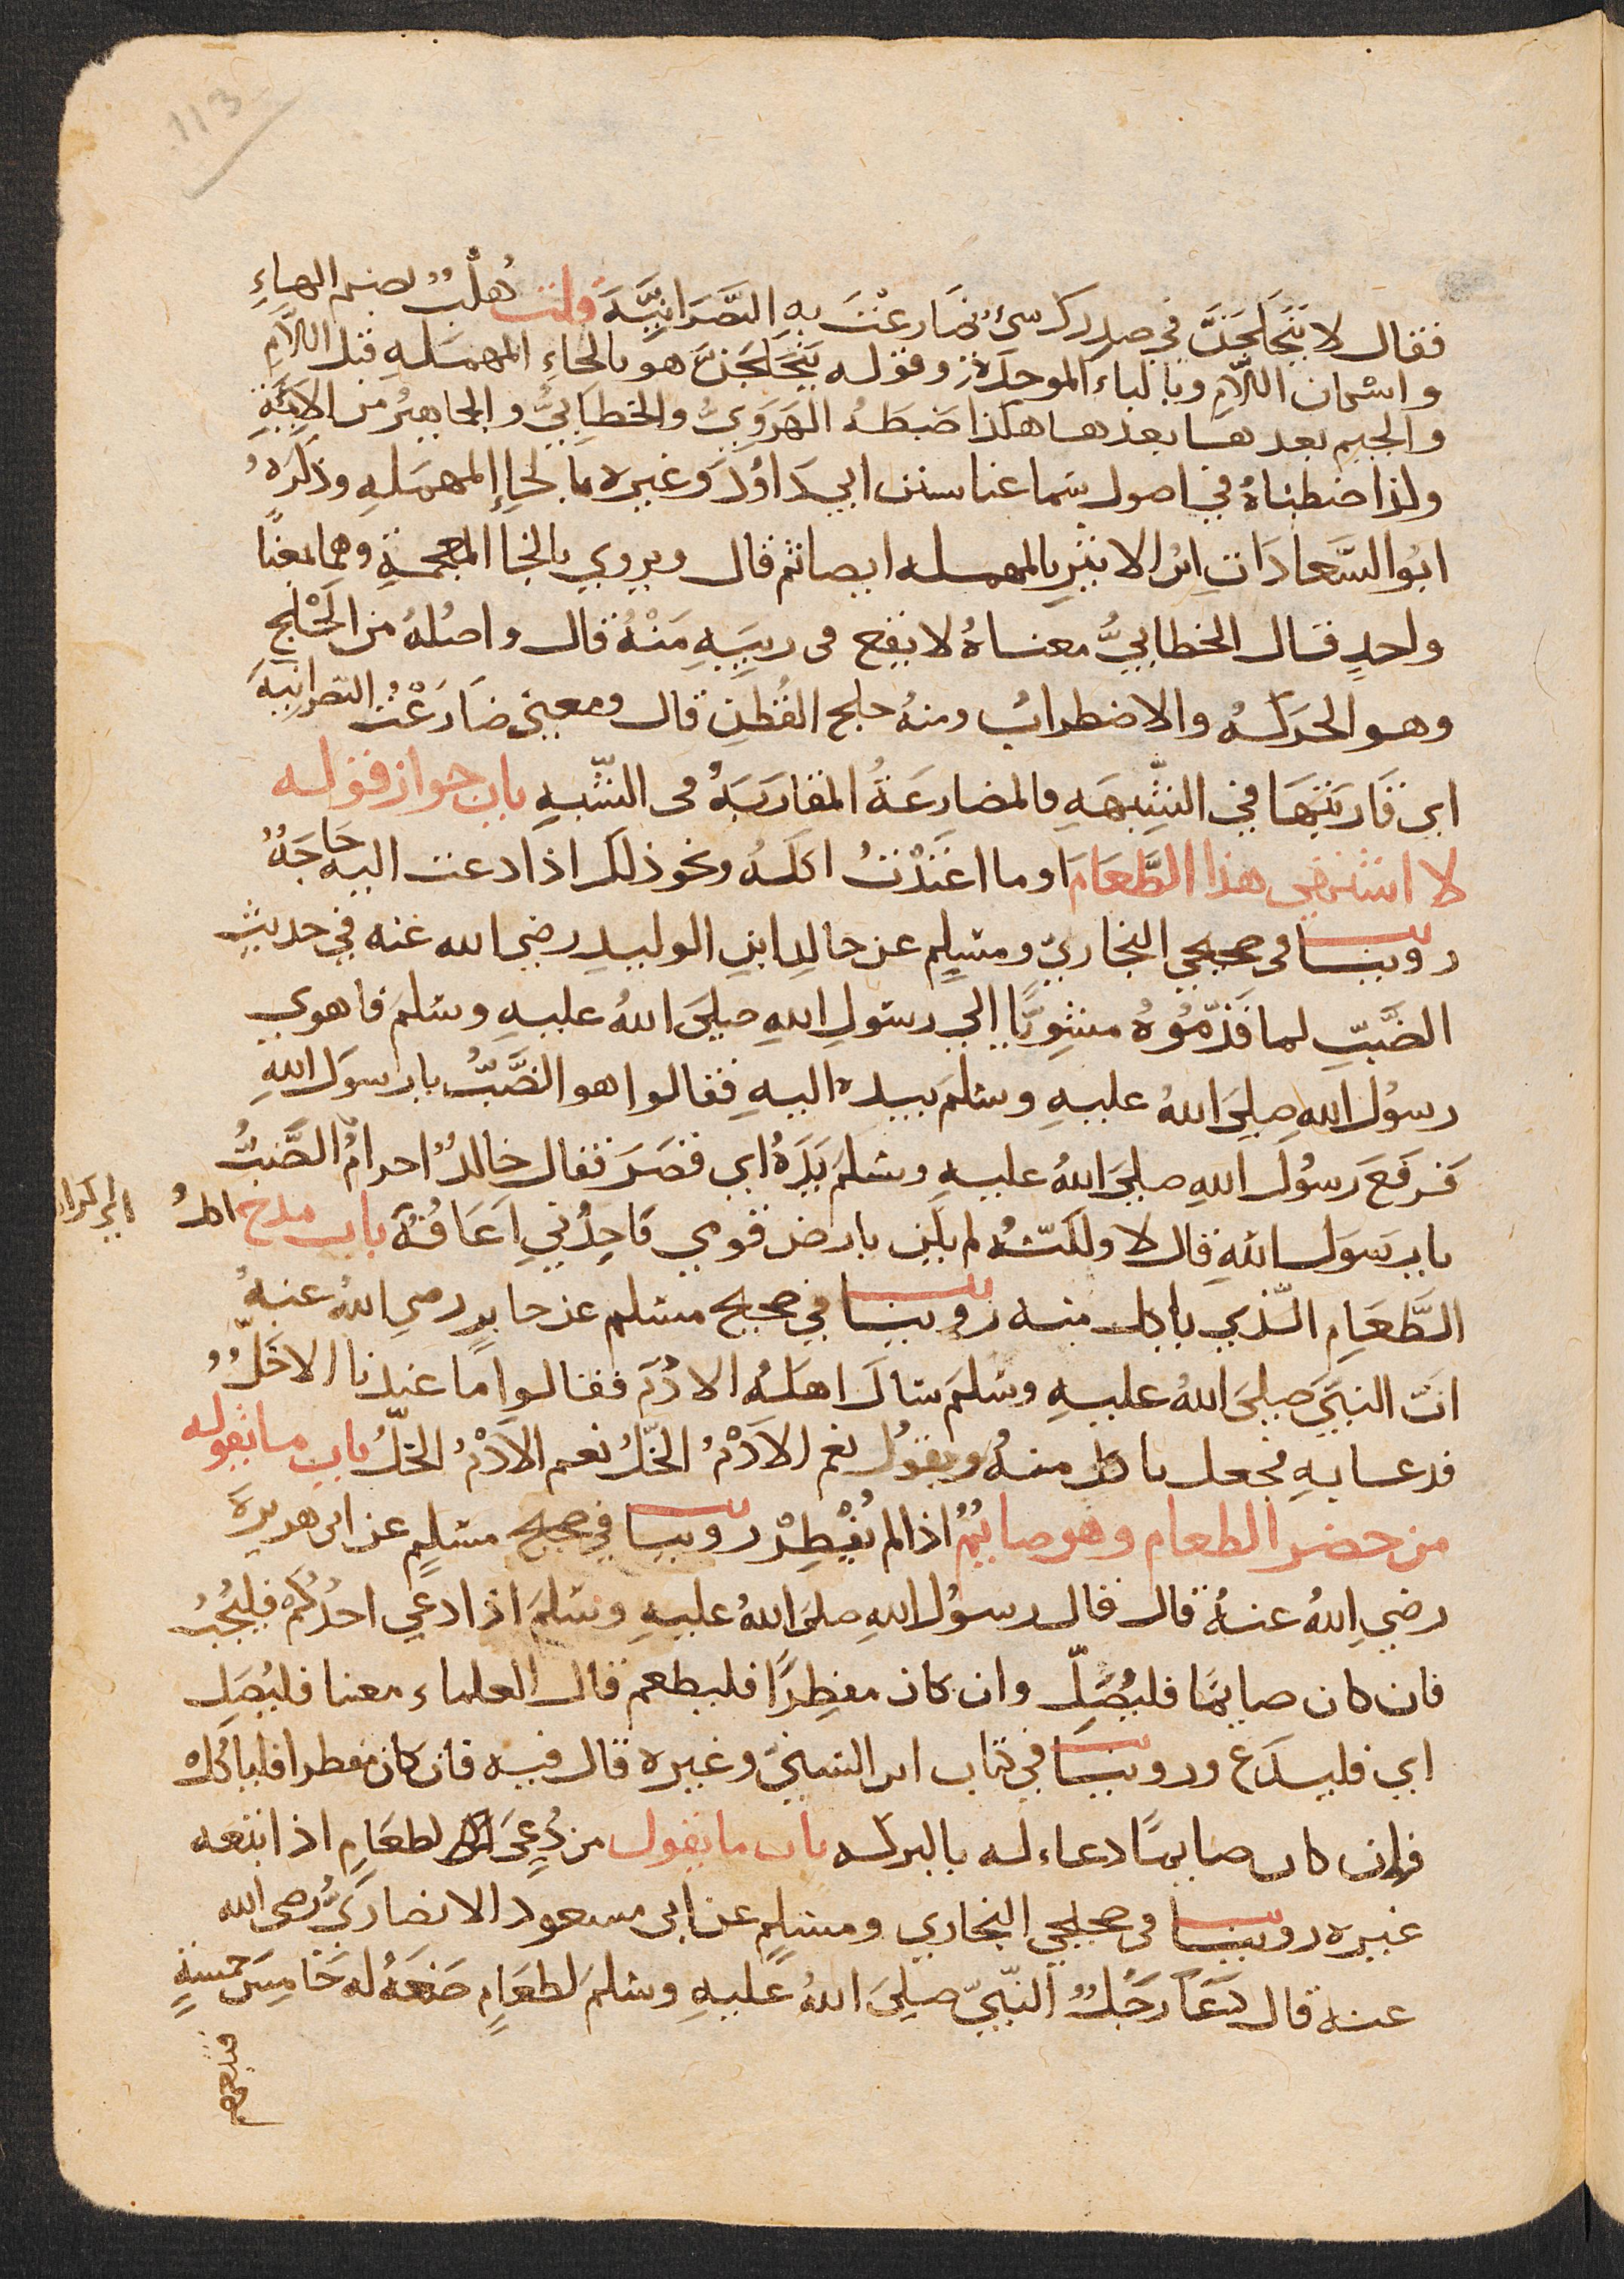 113
فقال لا يتحلجن في صدرك شيء ضارعت به النصرانية قلت هُلْبٌ بضم الهاء
واسكان اللام وبالباء الموحدة وقوله يتحلجن هو بالحاء المهملة قبل اللام
والجيم بعدها بعدها هكذا ضبطه الهروي والخطابي والجماهير من الايمة
ولذا ضبطناه في اصول سماعنا سنن ابي داود وغيره بالحاء المهملة وذكره
ابو السعادات ابن الاثير بالمهملة ايضا ثم قال ويروي بالخا المعجمة وهما بمعنًا
واحدٍ قال الخطابي معناه لا يقع في ريبة منه قال واصله من الحلج
وهو الحركة والاضطراب ومنه حلج القطن قال ومعني ضارعت النصرانية
اي قاربتها في الشبهه فالمضارعة المقاربة في الشبه باب جواز قوله
لا اشتهي هذا الطعام او ما اعتدت اكله ونحو ذلك اذا دعت اليه حاجة
روينا في صحيحي البخاري ومسلم عن خالد ابن الوليد رضي الله عنه في حديث
الضب لما قدموه مشويًا الي رسول الله صلي الله عليه وسلم فاهوي
رسول الله صلي الله عليه وسلم بيده اليه فقالوا هو الضب يا رسول الله
فرفع رسول الله صلي الله عليه وسلم يده اي قصر فقال خالد احرام الضب
يا رسول الله قال لا ولكنه لم يكن بارض قومي فاجدني اعافه باب مدح
الطعام الذي ياكل منه روينا في صحيح مسلم عن جابر رضي الله عنه
ان النبي صلي الله عليه وسلم سال اهله الادم فقالوا ما عندنا الا خل
فدعا به فجعل ياكل منه ويقول نعم الادم الخل نعم الادم الخل باب ما يقوله
من حضر الطعام وهو صايم اذا لم يفطر روينا في صحيح مسلم عن ابي هريرة
رضي الله عنه قال قال رسول الله صلي الله عليه وسلم اذا دعي احدكم فليجب
فان كان صايما فليصلّ وان كان مفطرا فليطعم قال العلماء معنا فليصل
اي فليدع وروينا في كتاب ابن السني وغيره قال فيه فان كان مفطرا فلياكل
فان كان صايمًا دعاء له بالبركه باب ما يقول من دعي لطعام اذا اتبعه
غيره روينا في صحيحي البخاري ومسلم عن ابي مسعود الانصاري رضي الله
عنه قال دعا رجل النبي صلي الله عليه وسلم لطعام صنعه له خامس خمسة
فتبعهم